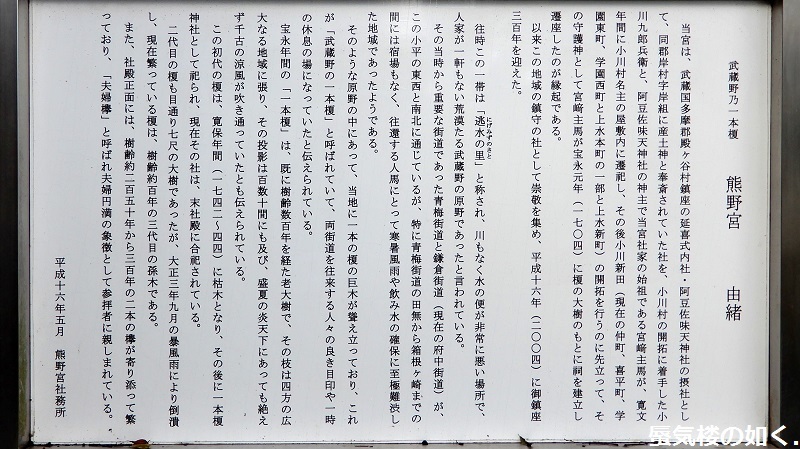 武蔵野乃一本榎　熊野宮　由緒
当宮は、武蔵国多摩郡殿ヶ谷村鎮座の延喜式内社・阿豆佐味天神社の摂社とし
て、同郡岸村字岸組に産土神と奉斎されていた社を、小川村の開拓に着手した小
川九郎兵衛と、阿豆佐味天神社の神主で当宮社家の始祖である宮﨑主馬が、寛文
年間に小川村名主の屋敷内に遷祀し、その後小川新田（現在の仲町、喜平町、学
園東町、学園西町と上水本町の一部と上水新町）の開拓を行うのに先立って、そ
の守護神として宮﨑主馬が宝永元年（一七〇四）に榎の大樹のもとに祠を建立し
遷座したのが縁起である。
以来この地域の鎮守の社として崇敬を集め、平成十六年（二〇〇四）に御鎮座
三百年を迎えた。
往時この一帯は「逃水の里」と称され、川もなく水の便が非常に悪い場所で、
にげみずのさと
人家が一軒もない荒漠たる武蔵野の原野であったと言われている。
その当時から重要な街道であった青梅街道と鎌倉街道（現在の府中街道）が、
この小平の東西と南北に通じているが、特に青梅街道の田無から箱根ヶ崎までの
間には宿場もなく、往還する人馬にとって寒暑風雨や飲み水の確保に至極難渋し
た地域であったようである。
そのような原野の中にあって、当地に一本の榎の巨木が聳え立っており、これ
が「武蔵野の一本榎」と呼ばれていて、両街道を往来する人々の良き目印や一時
の休息の場になっていたと伝えられている。
宝永年間の「一本榎」は、既に樹齢数百年を経た老大樹で、その枝は四方の広
大なる地域に張り、その投影は百数十間にも及び、盛夏の炎天下にあっても絶え
ず千古の涼風が吹き通っていたとも伝えられている。
この初代の榎は、寛保年間（一七四二〜四四）に枯木となり、その後に一本榎
神社として祀られ、現在その社は、末社殿に合祀されている。
二代目の榎も目通り七尺の大樹であったが、大正三年九月の暴風雨により倒潰
し、現在繁っている榎は、樹齢約百年の三代目の孫木である。
また、社殿正面には、樹齢約二百五十年から三百年の二本の欅が寄り添って繁
っており、「夫婦欅」と呼ばれ夫婦円満の象徴として参拝者に親しまれている。
平成十六年五月　熊野宮社務所
蜃気楼の如く.